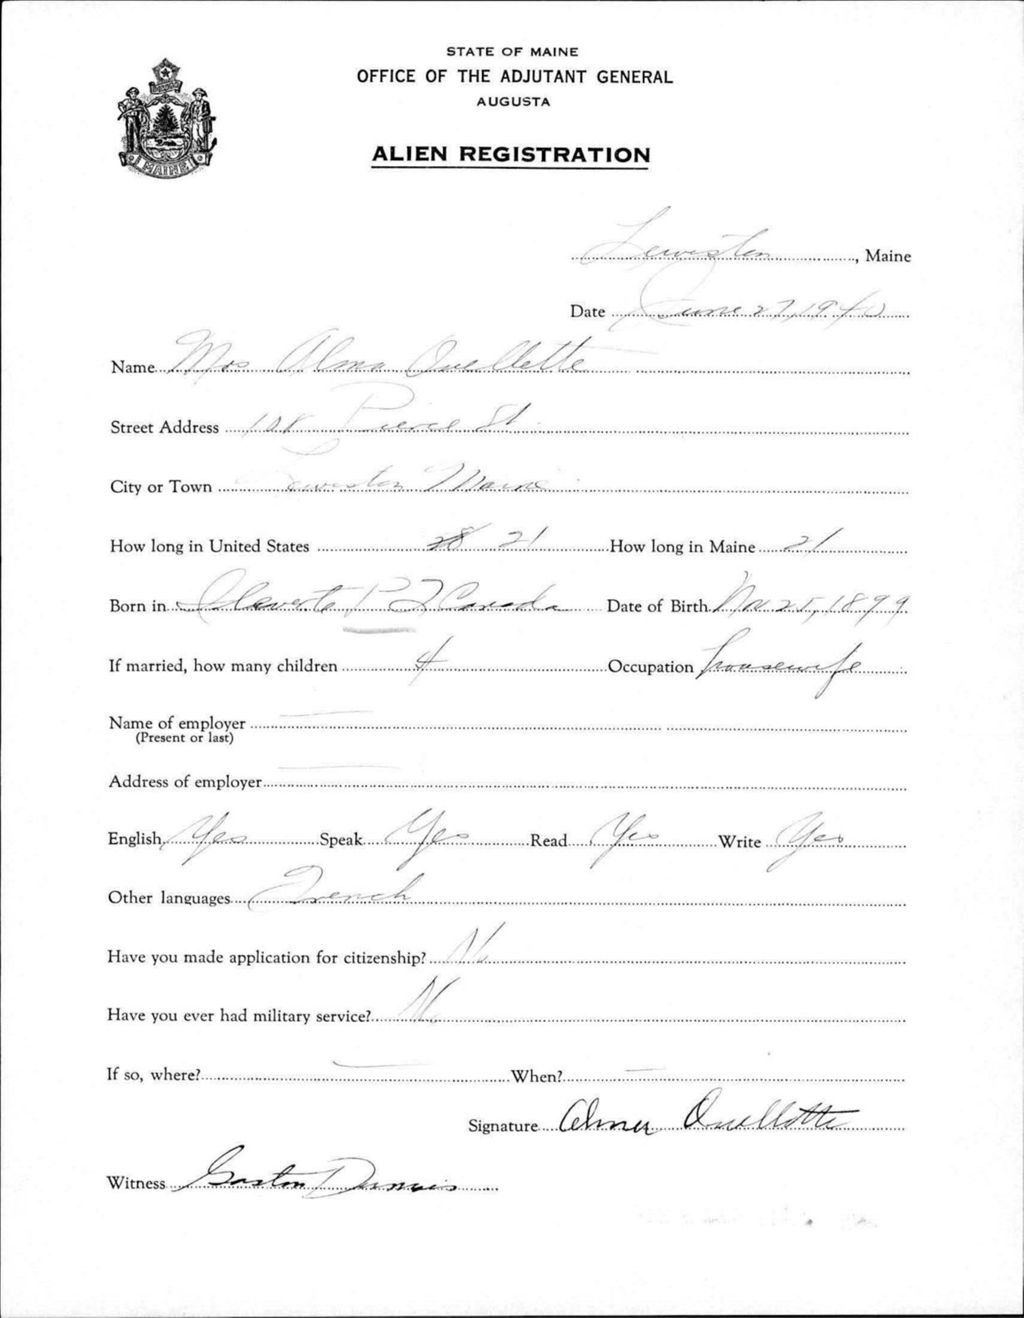 STATE OF MAINE
OFFICE OF THE ADJUTANT GENERAL
AUGUSTA
MAINE
ALIEN REGISTRATION
Lewiston, Maine
Date June 27, 1940
Name Mrs Alma Ouellette
Street Address 108 Pierce St.
City or Town Lewiston Maine
How long in United States 28 21 How long in Maine 21
Born in P Canada Date of Birth 25, 1899
If married, how many children 4 Occupation housewife
Name of employer —
(Present or last)
Address of employer —
English Yes Speak Yes Read Yes Write Yes
Other languages French
Have you made application for citizenship? No
Have you ever had military service? No
If so, where? — When? —
Signature Alma Ouellette
Witness Gaston Dumais